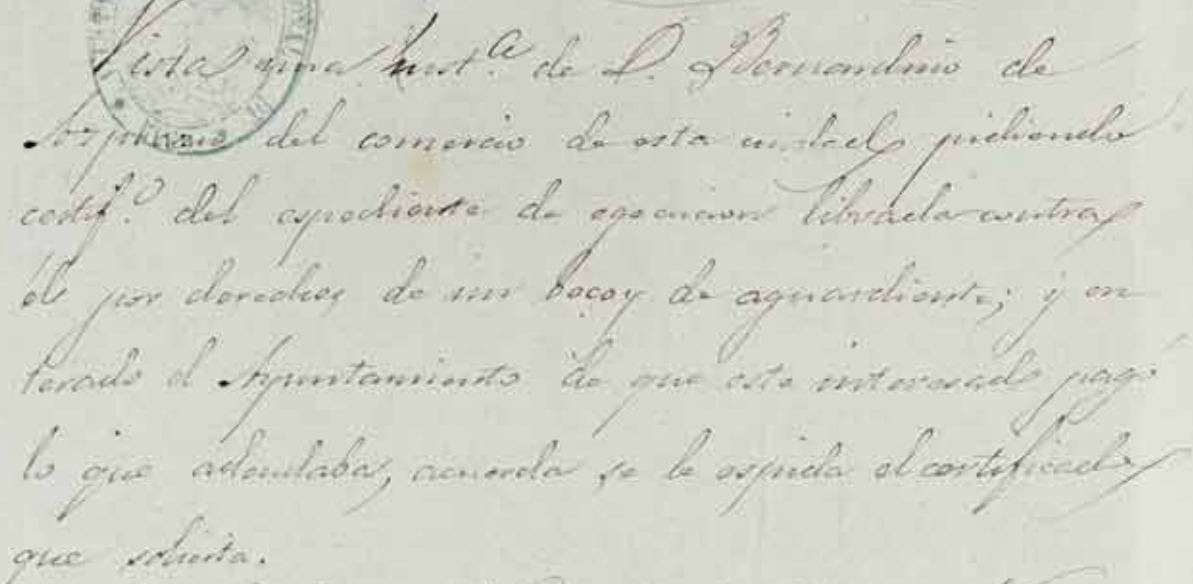 Vista una inst.ª de D. Bernardino de
del comercio de esta ciudad, pidiendo
certif.º del espediente de egecucion librado contra
él por derechos de un bocoy de aguardiente; y en
terado el Ayuntamiento de que este interesado pagó
lo que adeudaba, acuerda se le espida el certificado
que solicita.